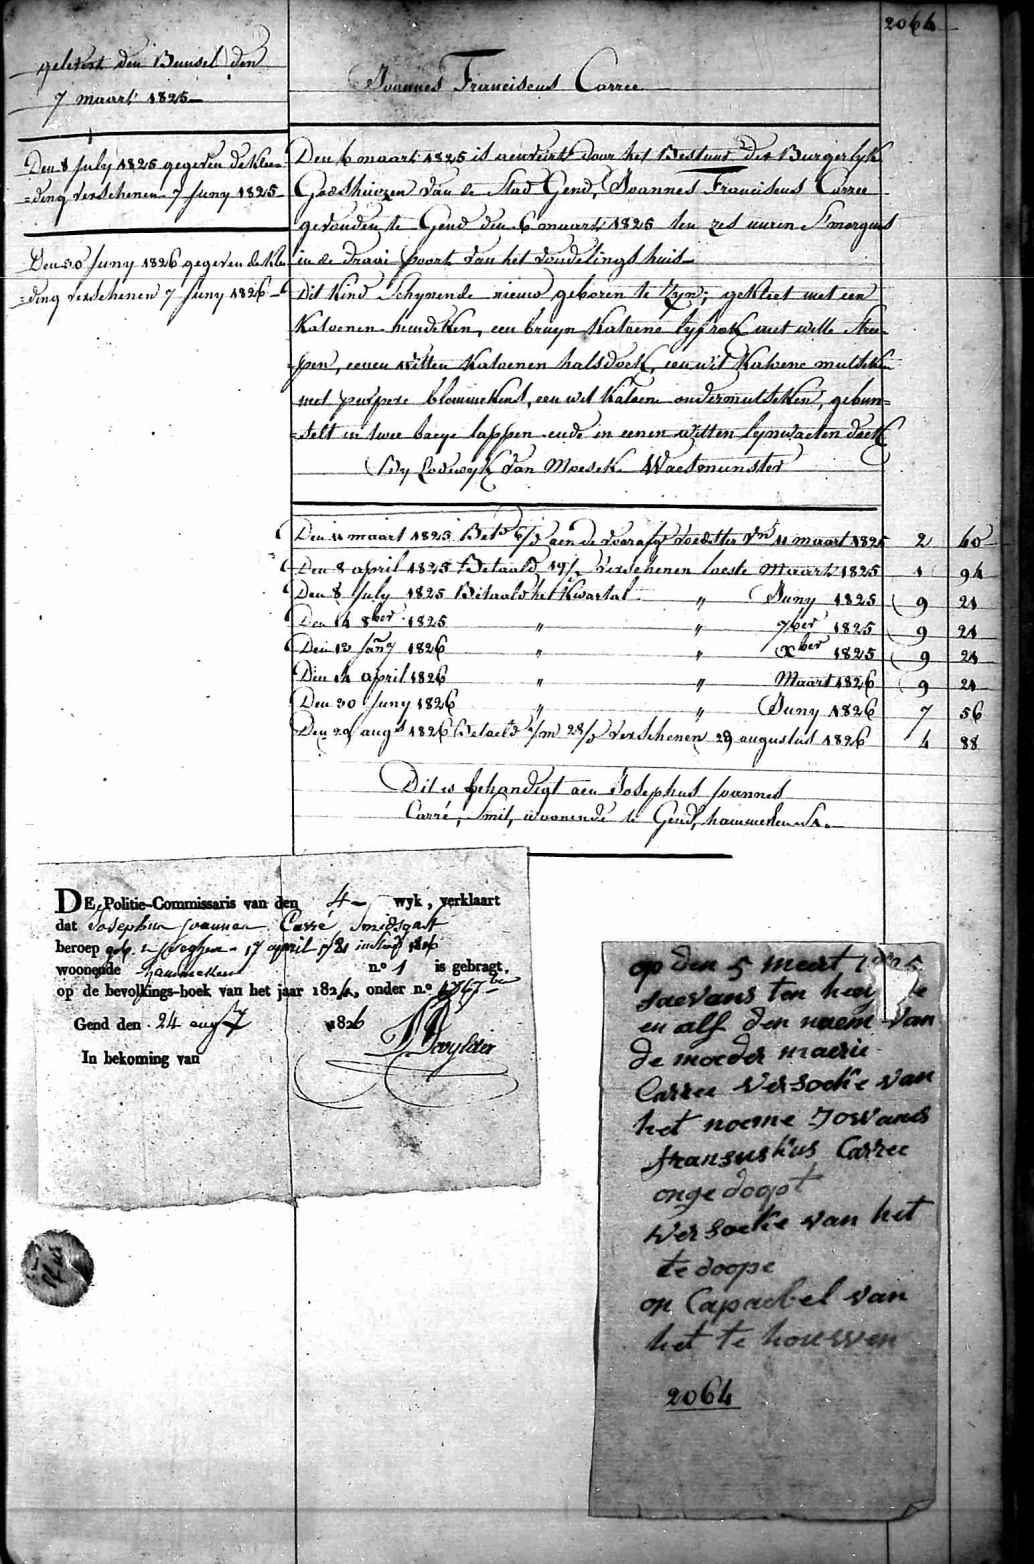 2064
gelevert den Bunsel den
7 maart 1825
Joannes Franciscus Carree
Den 8 July 1825 gegeven de klee=
=ding verschenen 7 Juny 1825
Den 30 Juny 1826 gegeven de klee
=ding verschenen 7 Juny 1826
Den 6 maart 1825 is aenveird door het Bestuur der Burgerlyk
Godshuizen van de Stad Gend, Joannes Franciscus Carree
gevonden te Gend den 6 maart 1825 ten zes uuren s'morgens
in de draai poort van het vondelings huis
Dit Kind Schynende nieuw geboren te zyn; gekleet met een
Katoenen hemdeken, een bruyn Katoene lyfrok met witte stree
pen, eenen witten Katoenen halsdoek, een wit Katoene mutseken
met purpere blommekens, een wit Katoene ondermutseken, gebun=
=delt in twee baeye lappen ende in eenen witten lynwaeten doek
by Lodewyk Van Moeseke Waesmunster
Den 11 maart 1825 Betd 6/ aen de voorafge voedster 11 maart 1825 2 60
Den 8 april 1825 Betaald 19/ verschenen laeste Maart 1825 1 94
Den 8 July 1825 Betaald het Kwartal " Juny 1825 9 21
Den 14 8ber 1825 " " 7ber 1825 9 21
Den 13 Jany 1826 " " Xber 1825 9 21
Den 14 april 1826 " " Maart 1826 9 21
Den 30 Juny 1826 " " Juny 1826 7 56
Den 29 augs 1826 Betaeld 2/m 28/ verschenen 29 augustus 1826 4 88
Dit is behandigt aen Josephus Joannes
Carré, Smit, woonende te Gend,
DE Politie-Commissaris van den 4 wyk, verklaart
dat Josephus Joannes Carré Smidsgast
beroep 17 april
woonende n.º 1 is gebragt,
op de bevolkings-boek van het jaar 182, onder n.º
Gend den 24 augst 1826
In bekoming van
op den 5 meert 1825
saevans ten
en alf den naem van
de moeder marie
Carree versoeke van
het noeme Jowanes
fransuskus Carree
onge doopt
versoeke van het
te doope
on Capaebel van
het te houwen
2064